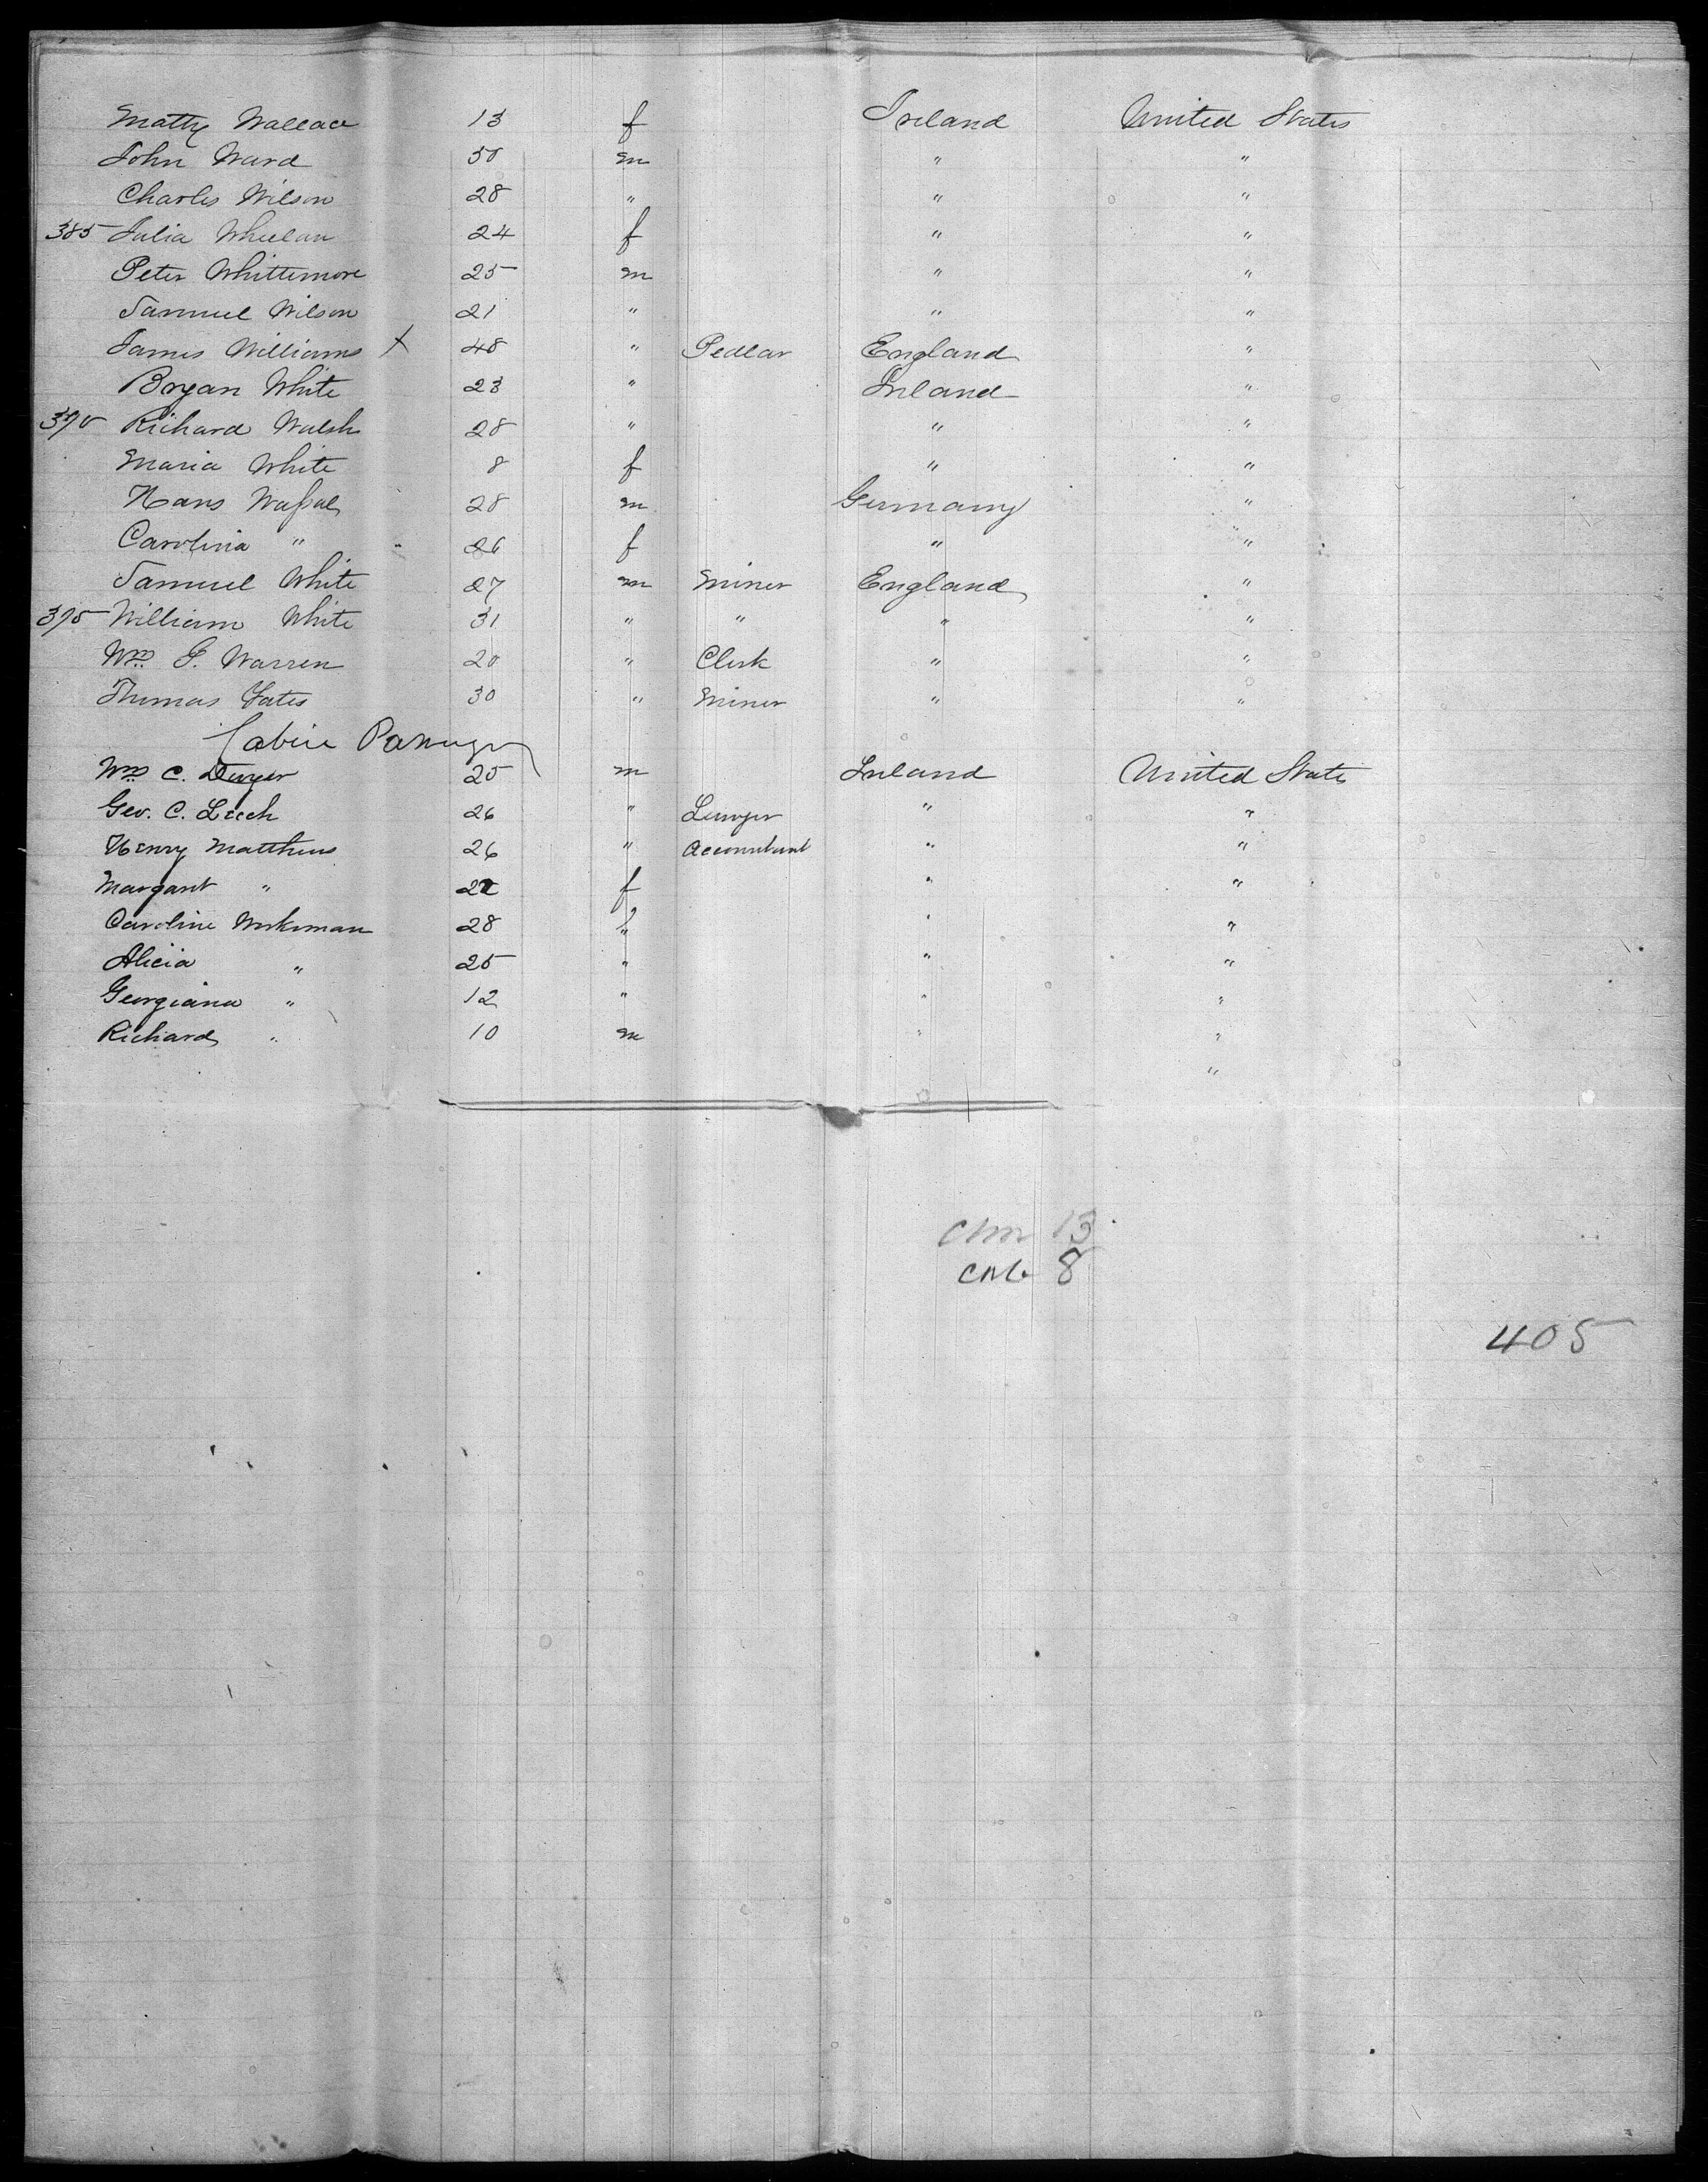 Matty Wallace 13 f Ireland United States
John Ward 30 m " "
Charles Wilson 28 " " "
385 Julia Wheelan 24 f " "
Peter Whittemore 25 m " "
Samuel Wilson 21 " " "
James Williams x 48 " Pedlar England "
Bryan White 23 " Ireland "
390 Richard Walsh 28 " " "
Maria White 8 f " "
Hans 28 m Germany "
Carolina " 26 f " "
Samuel White 27 m Miner England "
395 William White 31 " " " "
Wm G. Warren 20 " Clerk " "
Thomas Yates 30 " Miner " "
Cabin Passengers
Wm C. Dwyer 25 m Ireland United States
Geo. C. Leech 26 " Lawyer " "
Henry Matthews 26 " Accountant " "
Margaret " 22 f " "
Caroline 28 " " "
Alicia " 25 " " "
Georgiana " 12 " " "
Richard " 10 m " "
"
13
8
405